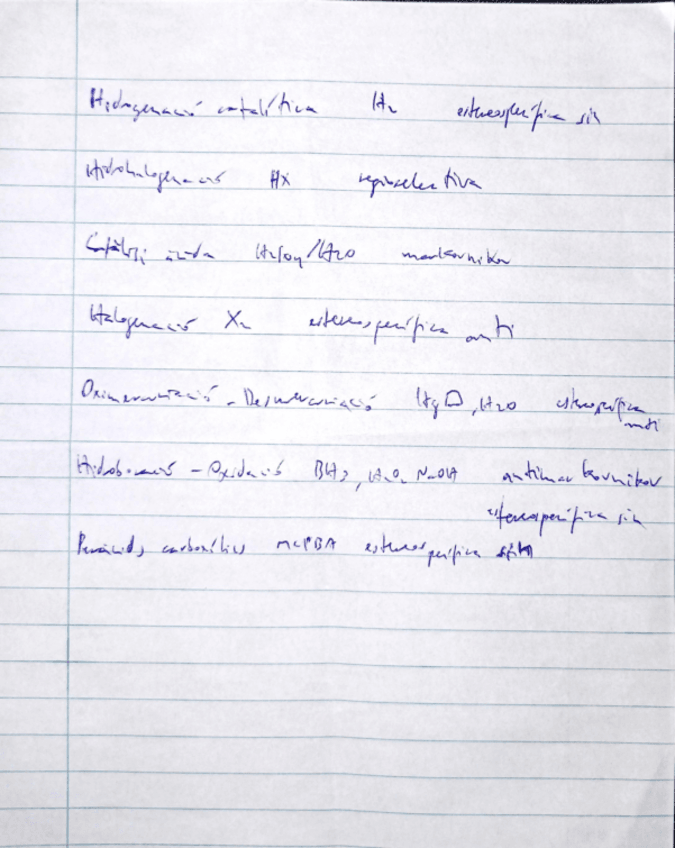 Hidrogenació catalítica H2 estereospecífica sin
Hidrohalogenació HX regioselectiva
Catàlisi àcida H2SO4/H2O markovnikov
Halogenació X2 estereospecífica anti
Oximercuriació - Desmercuriació Hg□, H2O estereospecífica
anti
Hidroboració - Oxidació BH3, H2O2 NaOH antimarkovnikov
estereospecífica sin
Peràcids carboxílics MCPBA estereospecífica sin